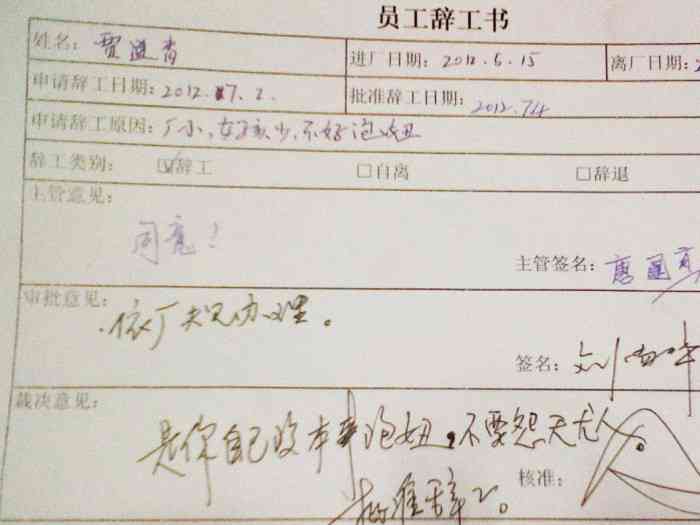 员工辞工书
姓名：贾进青 进厂日期：2012.6.15 离厂日期：2
申请辞工日期：2012.7.2. 批准辞工日期：2012.7.4
申请辞工原因：厂小，女孩少，不好泡妞
辞工类别： ☑辞工 □自离 □辞退
主管意见：
同意！
主管签名：唐
审批意见：
依厂规办理。
签名：刘
裁决意见：
是你自己没本事泡妞，不要怨天尤人。
核准：
批准辞工。